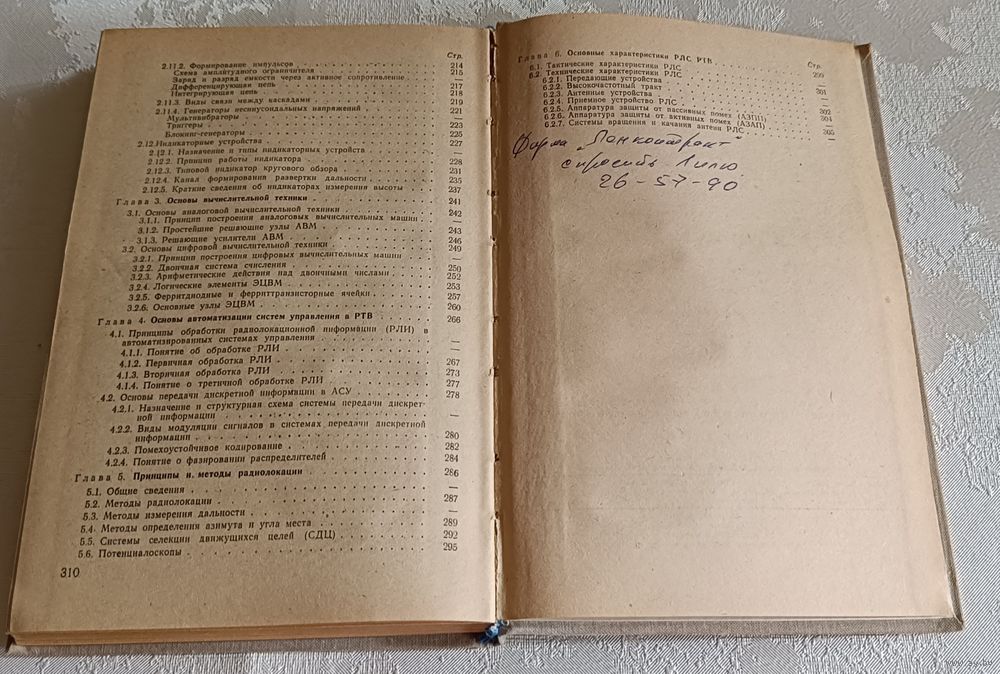 Стр.
2.11.2. Формирование импульсов 214
Схема амплитудного ограничителя 215
Заряд и разряд емкости через активное сопротивление —
Дифференцирующая цепь 217
Интегрирующая цепь 218
2.11.3. Виды связи между каскадами 219
2.11.4. Генераторы несинусоидальных напряжений 221
Мультивибраторы —
Триггеры 223
Блокинг-генераторы 225
2.12. Индикаторные устройства 227
2.12.1. Назначение и типы индикаторных устройств —
2.12.2. Принцип работы индикатора 228
2.12.3. Типовой индикатор кругового обзора 231
2.12.4. Канал формирования развертки дальности 235
2.12.5. Краткие сведения об индикаторах измерения высоты 237
Глава 3. Основы вычислительной техники 241
3.1. Основы аналоговой вычислительной техники 242
3.1.1. Принцип построения аналоговых вычислительных машин —
3.1.2. Простейшие решающие узлы АВМ 243
3.1.3. Решающие усилители АВМ 246
3.2. Основы цифровой вычислительной техники 249
3.2.1. Принцип построения цифровых вычислительных машин —
3.2.2. Двоичная система счисления 250
3.2.3. Арифметические действия над двоичными числами 252
3.2.4. Логические элементы ЭЦВМ 253
3.2.5. Ферритдиодные и ферриттранзисторные ячейки 257
3.2.6. Основные узлы ЭЦВМ 260
Глава 4. Основы автоматизации систем управления в РТВ 266
4.1. Принципы обработки радиолокационной информации (РЛИ) в
автоматизированных системах управления —
4.1.1. Понятие об обработке РЛИ —
4.1.2. Первичная обработка РЛИ 267
4.1.3. Вторичная обработка РЛИ 273
4.1.4. Понятие о третичной обработке РЛИ 277
4.2. Основы передачи дискретной информации в АСУ 278
4.2.1. Назначение и структурная схема системы передачи дискрет-
ной информации —
4.2.2. Виды модуляции сигналов в системах передачи дискретной
информации 280
4.2.3. Помехоустойчивое кодирование 282
4.2.4. Понятие о фазировании распределителей 284
Глава 5. Принципы и методы радиолокации 286
5.1. Общие сведения —
5.2. Методы радиолокации 287
5.3. Методы измерения дальности —
5.4. Методы определения азимута и угла места 289
5.5. Системы селекции движущихся целей (СДЦ) 292
5.6. Потенциалоскопы 295
310
Глава 6. Основные характеристики РЛС РТВ
Стр.
6.1. Тактические характеристики РЛС 299
6.2. Технические характеристики РЛС —
6.2.1. Передающие устройства
6.2.2. Высокочастотный тракт 301
6.2.3. Антенные устройства —
6.2.4. Приемное устройство РЛС
6.2.5. Аппаратура защиты от пассивных помех (АЗПП)
6.2.6. Аппаратура защиты от активных помех (АЗАП) 304
6.2.7. Системы вращения и качания антенн РЛС 305
Фирма "Лонконтракт"
спросить Лилю
26-57-90